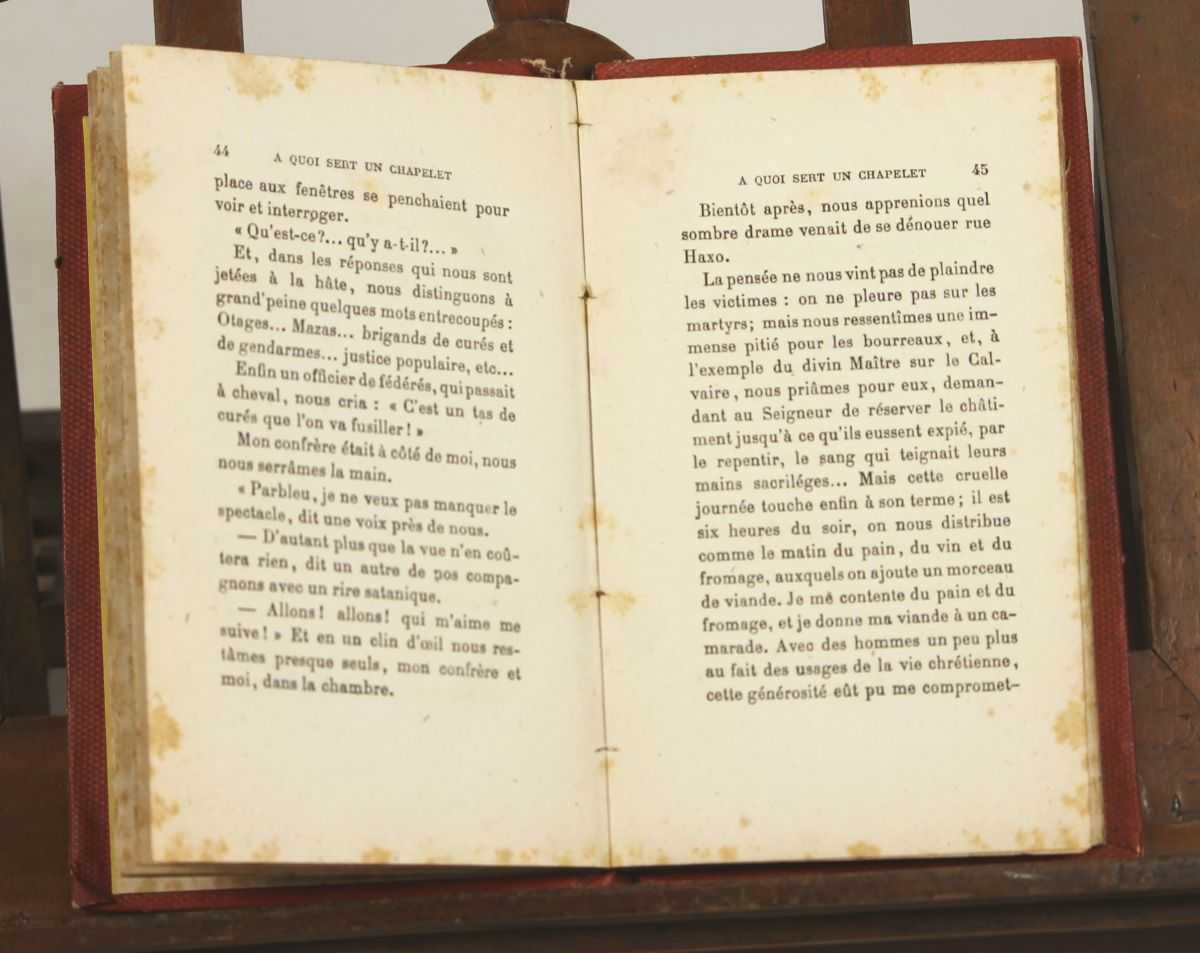 44 A QUOI SERT UN CHAPELET
place aux fenêtres se penchaient pour
voir et interroger.
« Qu'est-ce?... qu'y a-t-il?... »
Et, dans les réponses qui nous sont
jetées à la hâte, nous distinguons à
grand'peine quelques mots entrecoupés :
Otages... Mazas... brigands de curés et
de gendarmes... justice populaire, etc...
Enfin un officier de fédérés, qui passait
à cheval, nous cria : « C'est un tas de
curés que l'on va fusiller! »
Mon confrère était à côté de moi, nous
nous serrâmes la main.
« Parbleu, je ne veux pas manquer le
spectacle, dit une voix près de nous.
— D'autant plus que la vue n'en coû-
tera rien, dit un autre de nos compa-
gnons avec un rire satanique.
— Allons! allons! qui m'aime me
suive! » Et en un clin d'œil nous res-
tâmes presque seuls, mon confrère et
moi, dans la chambre.
A QUOI SERT UN CHAPELET 45
Bientôt après, nous apprenions quel
sombre drame venait de se dénouer rue
Haxo.
La pensée ne nous vint pas de plaindre
les victimes : on ne pleure pas sur les
martyrs; mais nous ressentîmes une im-
mense pitié pour les bourreaux, et, à
l'exemple du divin Maître sur le Cal-
vaire, nous priâmes pour eux, deman-
dant au Seigneur de réserver le châti-
ment jusqu'à ce qu'ils eussent expié, par
le repentir, le sang qui teignait leurs
mains sacriléges... Mais cette cruelle
journée touche enfin à son terme; il est
six heures du soir, on nous distribue
comme le matin du pain, du vin et du
fromage, auxquels on ajoute un morceau
de viande. Je me contente du pain et du
fromage, et je donne ma viande à un ca-
marade. Avec des hommes un peu plus
au fait des usages de la vie chrétienne,
cette générosité eût pu me compromet-